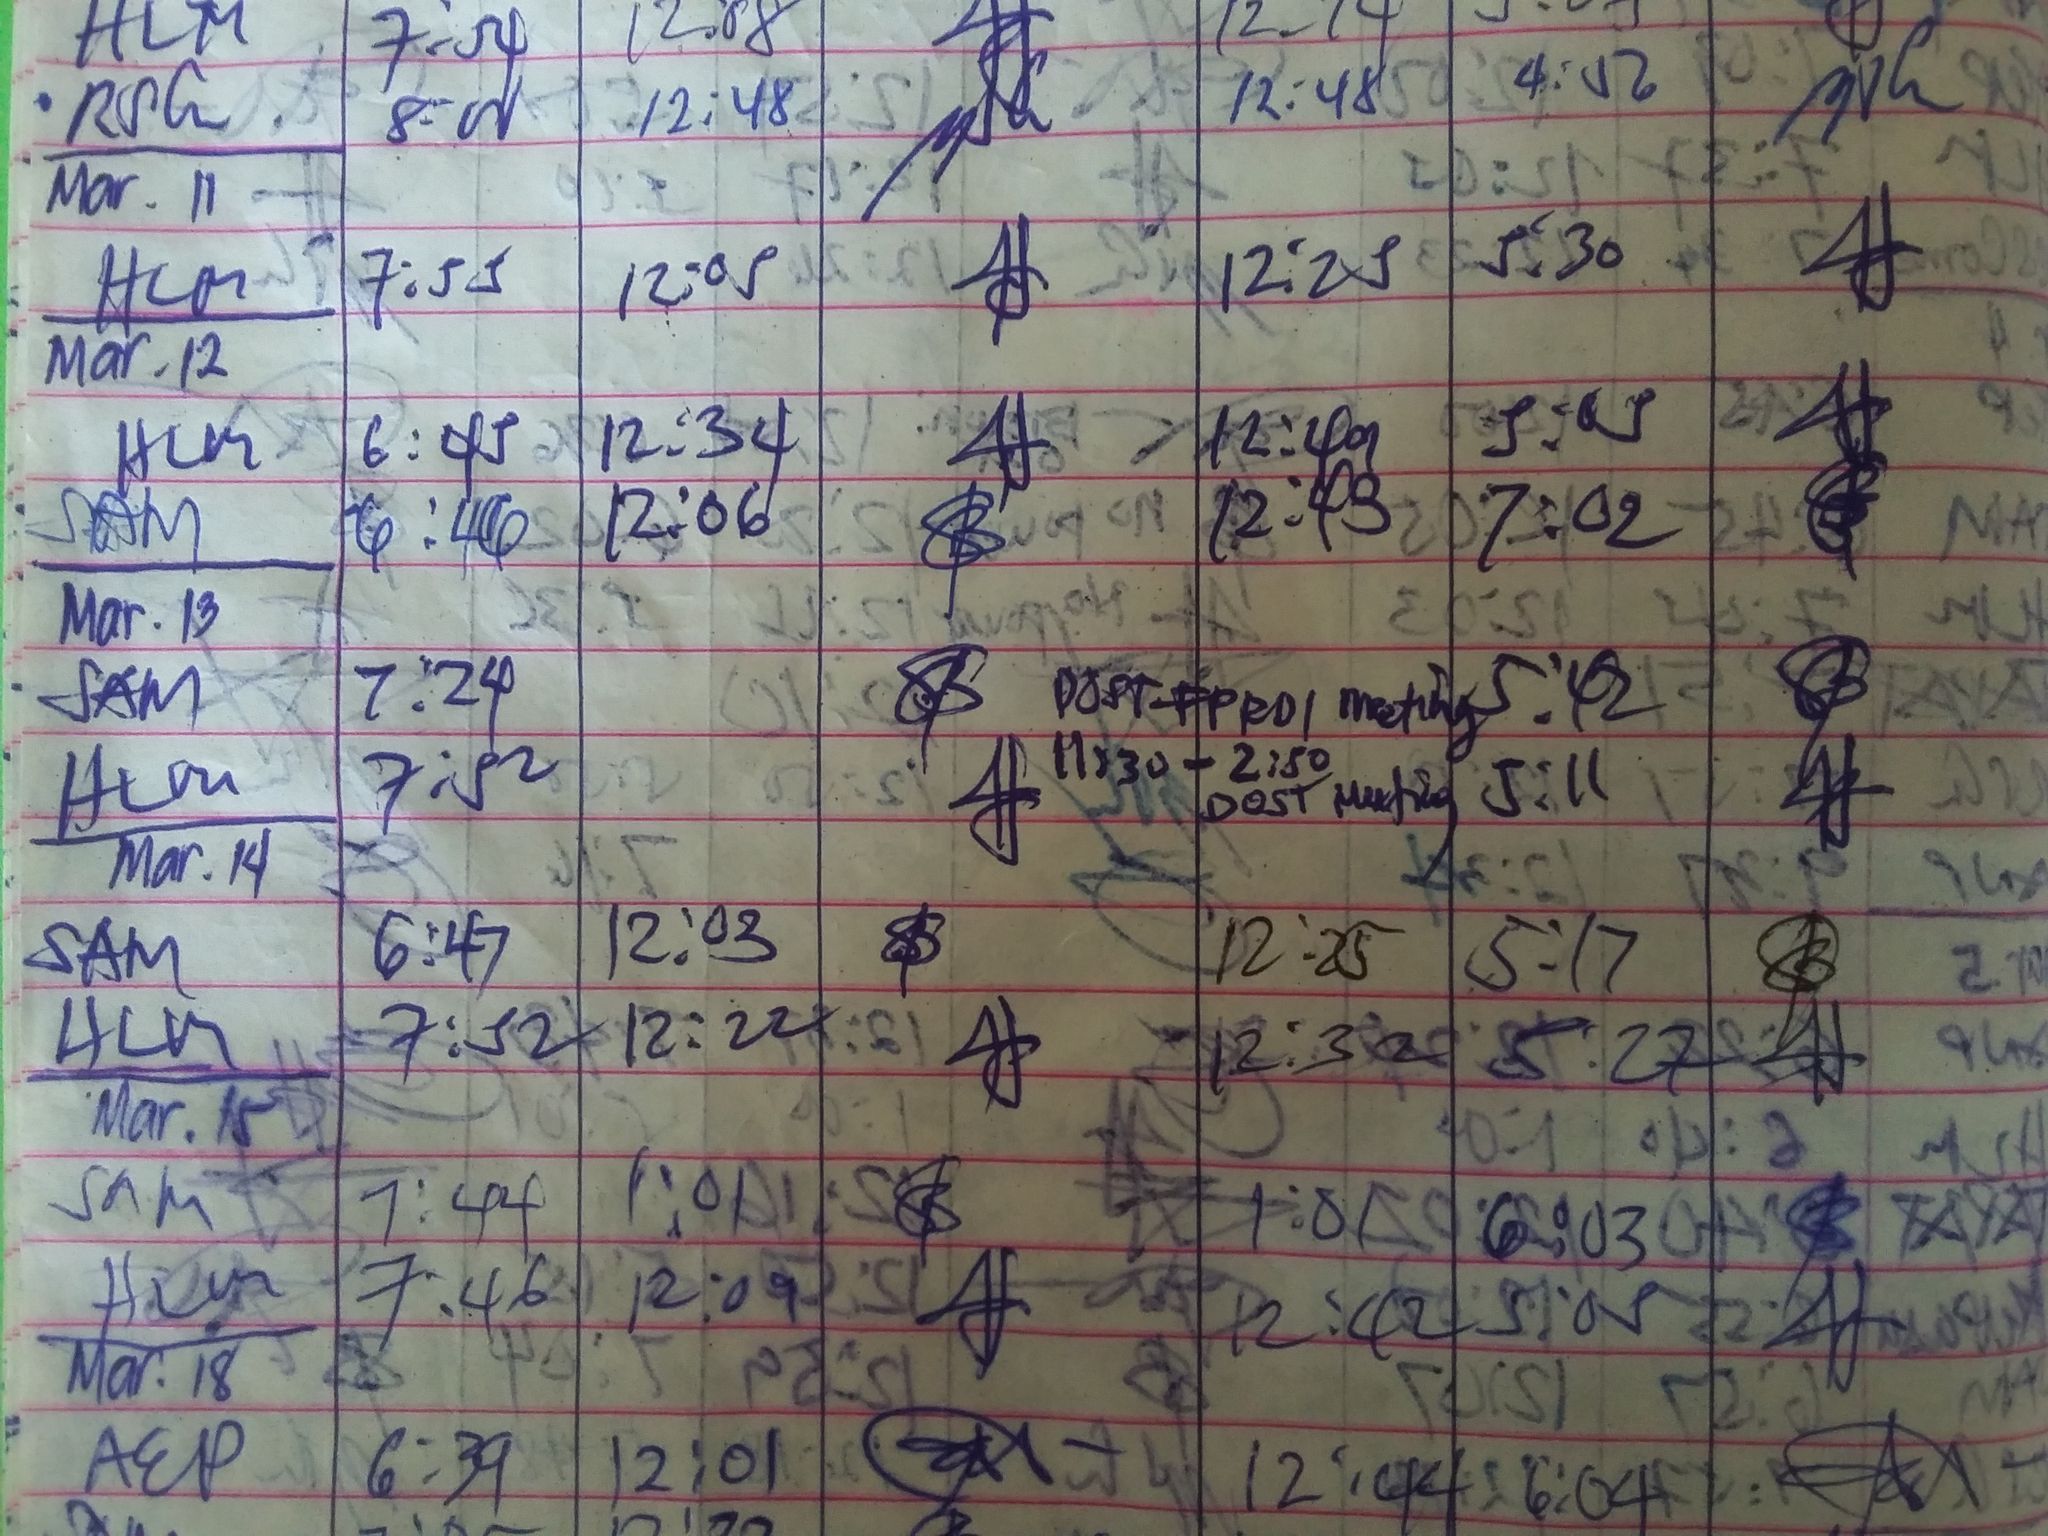 HLM 7:54 12:08 12:14
RSG 12:48 12:48 4:52
Mar. 11
HLM 7:55 12:05 12:25 5:30
Mar. 12
HLM 6:45 12:34 12:49 5:05
SAM 6:46 12:06 12:43 7:02
Mar. 13
SAM 7:24 DOST-FPRDI meeting 5:42
HLM 7:52 11:30 - 2:50 5:11
DOST meeting
Mar. 14
SAM 6:47 12:03 12:25 5:17
HLM 7:52 12:22 12:32 5:27
Mar. 15
SAM 7:44 1:01 1:01 6:03
HLM 7:46 12:09 12:42 5:05
Mar. 18
AEP 6:39 12:01 12:44 6:04